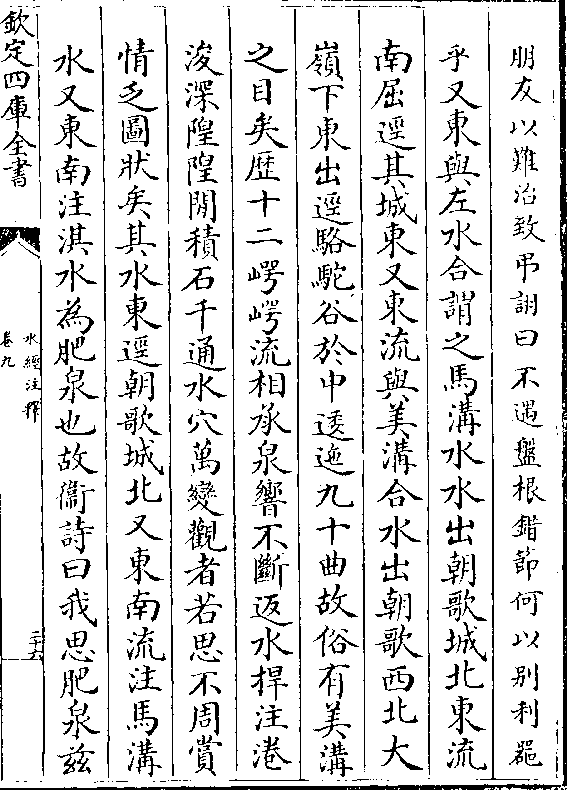 朋友以難治致弔詡曰不遇盤根錯節何以别利噐
乎又東與左水合謂之馬溝水水出朝歌城北東流
南屈逕其城東又東流與美溝合水出朝歌西北大
嶺下東出逕駱駝谷於中逶迤九十曲故俗有美溝
之目矣歴十二崿崿流相承泉響不斷返水捍注港
浚深隍隍閒積石千通水穴萬變觀者若思不周賞
情乏圖狀矣其水東逕朝歌城北又東南流注馬溝
水又東南注淇水為肥泉也故衞詩曰我思肥泉兹
欽定四庫全書
水經注釋
卷九
三十六